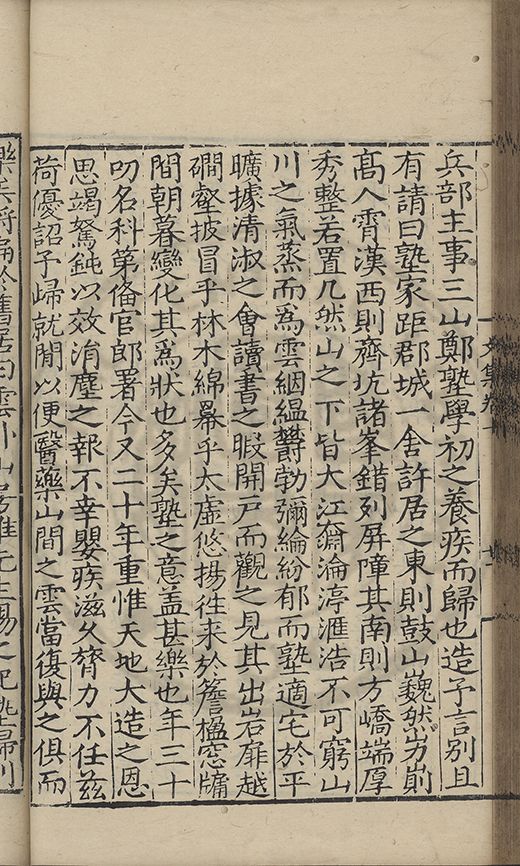 兵部主事三山鄭塾學初之養疾而歸也造予言別且
有請曰塾家距郡城一舍許居之東則鼓山巍然屴崱
高入霄漢西則齊坑諸峯錯列屏障其南則方嶠端厚
秀整若置几然山之下皆大江奫淪渟滙浩不可窮山
川之氣蒸而為雲絪緼欝勃彌綸紛郁而塾適宅於平
曠據清淑之會讀書之暇開戶而觀之見其出岩扉越
磵壑披冒乎林木綿羃乎太虛悠揚徃来於簷楹窓牖
間朝暮變化其為狀也多矣塾之意盖甚樂也年三十
叨名科第偹官郎署今又二十年重惟天地大造之恩
思竭駑鈍以效涓塵之報不幸嬰疾滋久膂力不任兹
荷優詔予歸就閒以便醫藥山間之雲當復與之俱而